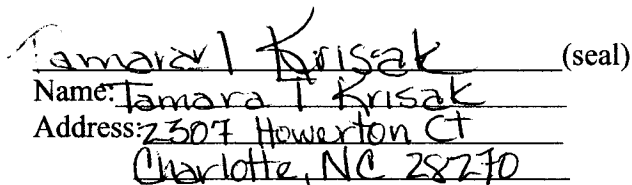 Tamara T Krisak (seal)
Name: Tamara T Krisak
Address: 2307 Howerton Ct
Charlotte, NC 28270